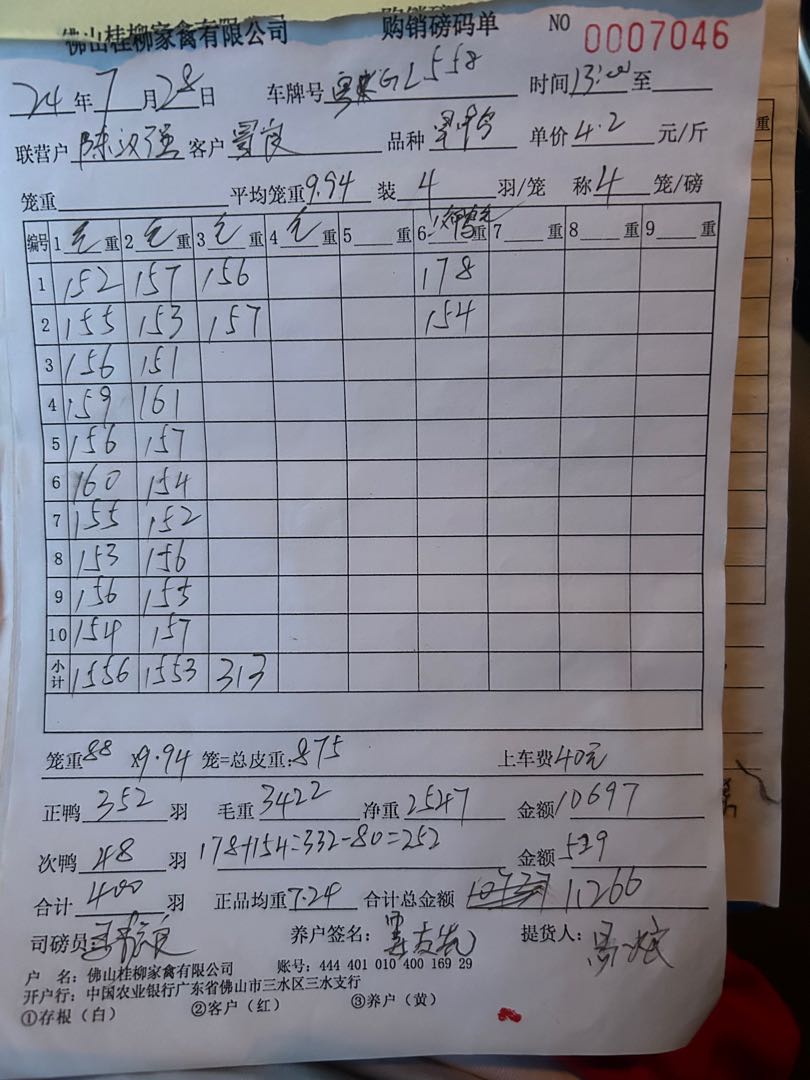 佛山桂柳家禽有限公司 购销磅码单 NO 0007046
24年7月28日 车牌号 GL558 时间13:00至
联营户 陈汉强 客户 品种 单价4.2元/斤
笼重 平均笼重9.94 装4羽/笼 称4笼/磅
编号 1毛重 2毛重 3毛重 4毛重 5重 6次鸭毛重 7重 8重 9重
1 152 157 156 178
2 155 153 157 154
3 156 151
4 159 161
5 156 157
6 160 154
7 155 152
8 153 156
9 156 155
10 154 157
小计 1556 1553 313
笼重88 x9.94笼=总皮重:875 上车费40元
正鸭352羽 毛重3422 净重2547 金额10697
次鸭48羽 178+154=332-80=252 金额529
合计400羽 正品均重7.24 合计总金额 11266
司磅员 养户签名: 提货人:
户 名:佛山桂柳家禽有限公司 账号:444 401 010 400 169 29
开户行:中国农业银行广东省佛山市三水区三水支行
①存根(白) ②客户(红) ③养户(黄)